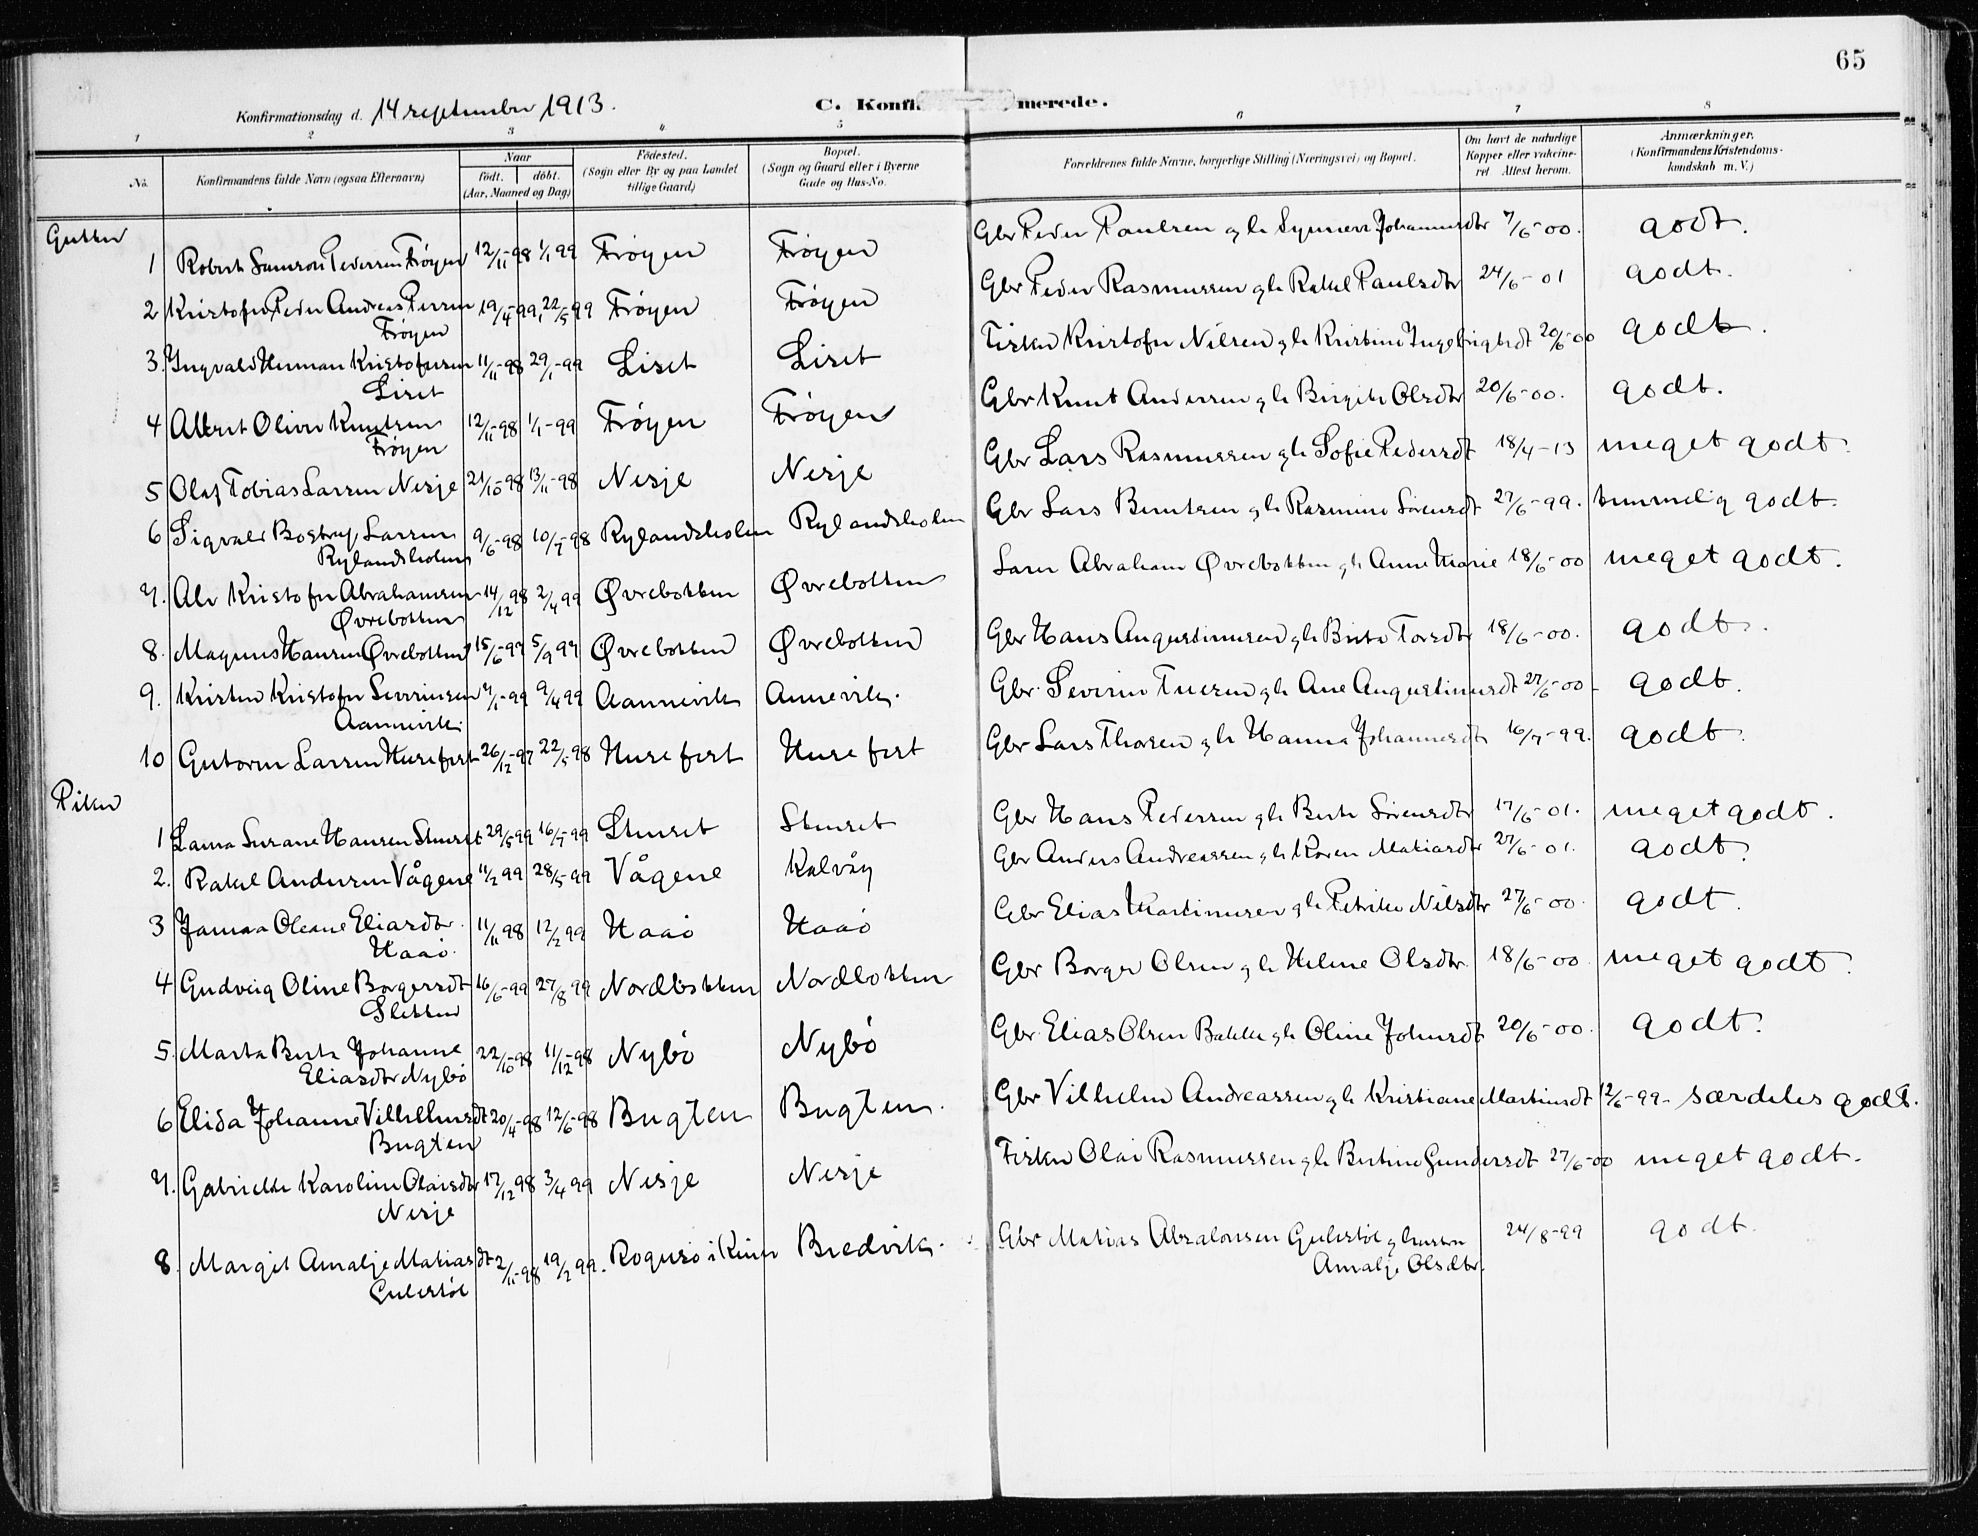 65
Konfirmationsdag d. 14 september 1913.
C. Konfirmerede.
1 2 3 4 5 6 7 8
No.
Konfirmandens fulde Navn (ogsaa Efternavn)
Naar
født. døbt.
(Aar, Maaned og Dag)
Fødested.
(Sogn eller By og paa Landet
tillige Gaard)
Bopæl.
(Sogn og Gaard eller i Byerne
Gade og Hus-No.
Forældrenes fulde Navne, borgerlige Stilling (Næringsvei) og Bopæl.
Om havt de naturlige
Kopper eller vaccine-
ret Attest herom.
Anmærkninger.
(Konfirmandens Kristendoms-
kundskab m. V.)
Gutter
1 Robert Samson Pedersen Frøyen 12/11-98 1/1 99 Frøyen Frøyen Gbr Peder Paulsen og h Synneve Johannesdtr 7/6-00. godt.
2 Kristofer Peder Andreas Persen 19/4-99, 22/5 99 Frøyen Frøyen Gbr Peder Rasmussen og h Rakel Paulsdtr 24/6-01 godt.
Frøyen
3. Ingvald Herman Kristofersen 11/11-98 29/1-99 Liset Liset Fisker Kristofer Nilsen og h Kristine Ingebrigtsdt 20/6-00 godt.
Liset
4 Albert Oliver Knutsen 12/11-98 1/1-99 Frøyen Frøyen Gbr Knut Andersen og h Birgite Olsdtr 20/6-00. godt.
Frøyen
5 Olaf Tobias Larsen Nesje 21/10-98 13/11-98 Nesje Nesje Gbr Lars Rasmussen og h Sofie Pedersdt 18/4-13 meget godt.
6 Sigvald Larsen 9/6-98 10/7-98 Rylandsholm Rylandsholm Gbr Lars Berntsen og h Rasmine Sørensdt 27/6-99. temmelig godt.
Rylandsholm
7. Alv Kristofer Abrahamsen 14/12 98 2/4 99 Øvrebotten Øvrebotten Abraham Øvrebotten og h Anne Marie 18/6-00 meget godt.
Øvrebotten
8. Magnus Hansen Øvrebotten 15/6-97 5/9 97 Øvrebotten Øvrebotten Gbr Hans Augustinusen og h Berte Torsdtr 18/6-00. godt.
9. Kristen Kristofer Severinsen 7/1-99 9/4 99 Aannevik Annevik. Gbr. Severin og h Ane Augustinusdt 27/6-00- godt.
Aannevik.
10 Gutorm Larsen Husefest 26/12-97 22/5-98 Husefest Husefest Gbr Lars Thorsen og h Hanna Johannesdt 16/7-99. godt.
Piker
1 Laura Susane Hansen Stenset 29/5 99 16/7-99 Stenset Stenset Gbr Hans Pedersen og h Berte Sørensdtr 17/6-01. meget godt.
2. Rakel Andersen Vågene 11/2 99 28/5-99 Vågene Kalvåg Gbr Anders Andreassen og h Karen Matiasdtr 27/6-01. godt.
3 Oleane Eliasdtr. 11/11 98 12/2 99 Haaö Haaö Gbr Elias Martinusen og h Petrike Nilsdtr 27/6-00. godt.
Haaö.
4 Gudveig Oline Borgersdt 16/6-99 27/8 99 Nordbotten Nordbotten Gbr Borger Olsen og h Helene Olsdtr. 18/6-00. meget godt.
Sletten
5. Marta Berte Johanne 22/10-98 11/12-98 Nybö Nybö Gbr. Elias Olsen Bakke og h Oline Johnsdt 20/6-00. godt.
Eliasdtr Nybö
6 Elida Johanne Vilhelmsdt 20/4-98 12/6-98 Bugten Bugten. Gbr Vilhelm Andreassen og h Kristiane Martinsdt 12/6-99- særdeles godt.
Bugten
7. Gabrielle Karoline Olaisdtr 17/12 98 3/4 99 Nesje Nesje Fisker Olai Rasmussen og h Bertine Gundersdt 27/6-00 meget godt.
Nesje
8. Margit Amalje Matiasdt 2/11-98 19/2 99. Rognsö i Kinn Bredvik. Gbr Matias Absalonsen Gulestöl og hustru 24/8-99 godt.
Gulestöl Amalje Olsdtr.